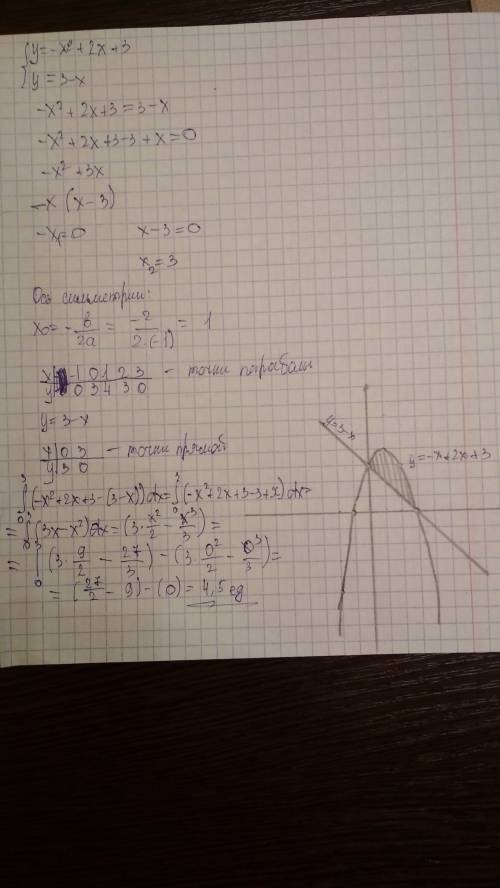 {y=-x²+2x+3
{y=3-x
-x²+2x+3=3-x
-x²+2x+3-3+x=0
-x²+3x
-x(x-3)
-x₁=0    x-3=0
x₂=3
Ось симметрии:
x₀=-b/2a = -2/2·(-1) = 1
x|-1 0 1 2 3 - точки параболы
y|0 3 4 3 0
y=3-x
x|0 3 - точки прямой
y|3 0
∫₀³(-x²+2x+3-(3-x))dx=∫₀³(-x²+2x+3-3+x)dx=
=∫₀³(3x-x²)dx=(3·x²/2-x³/3)=
=∫₀³(3·9/2-27/3)-(3·0²/2-0³/3)=
=(27/2-9)-(0)=4,5 ед
y=3-x
y=-x+2x+3